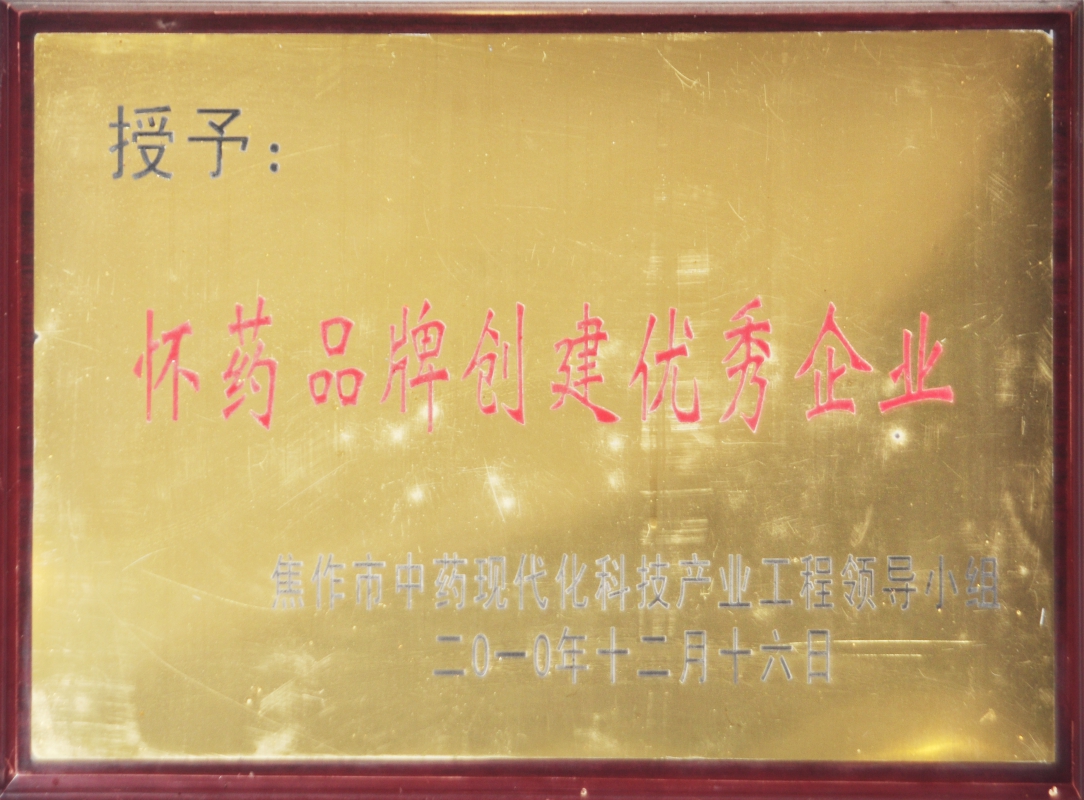 授予:
怀药品牌创建优秀企业
焦作市中药现代化科技产业工程领导小组
二0一0年十二月十六日